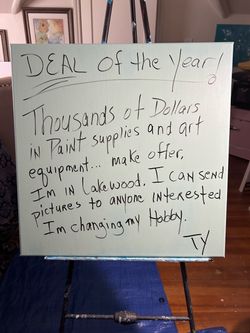 DEAL of the Year!
Thousands of Dollars
in Paint supplies and art
equipment... make offer.
I'm in Lakewood. I can send
pictures to anyone interested
I'm changing my Hobby.
TY